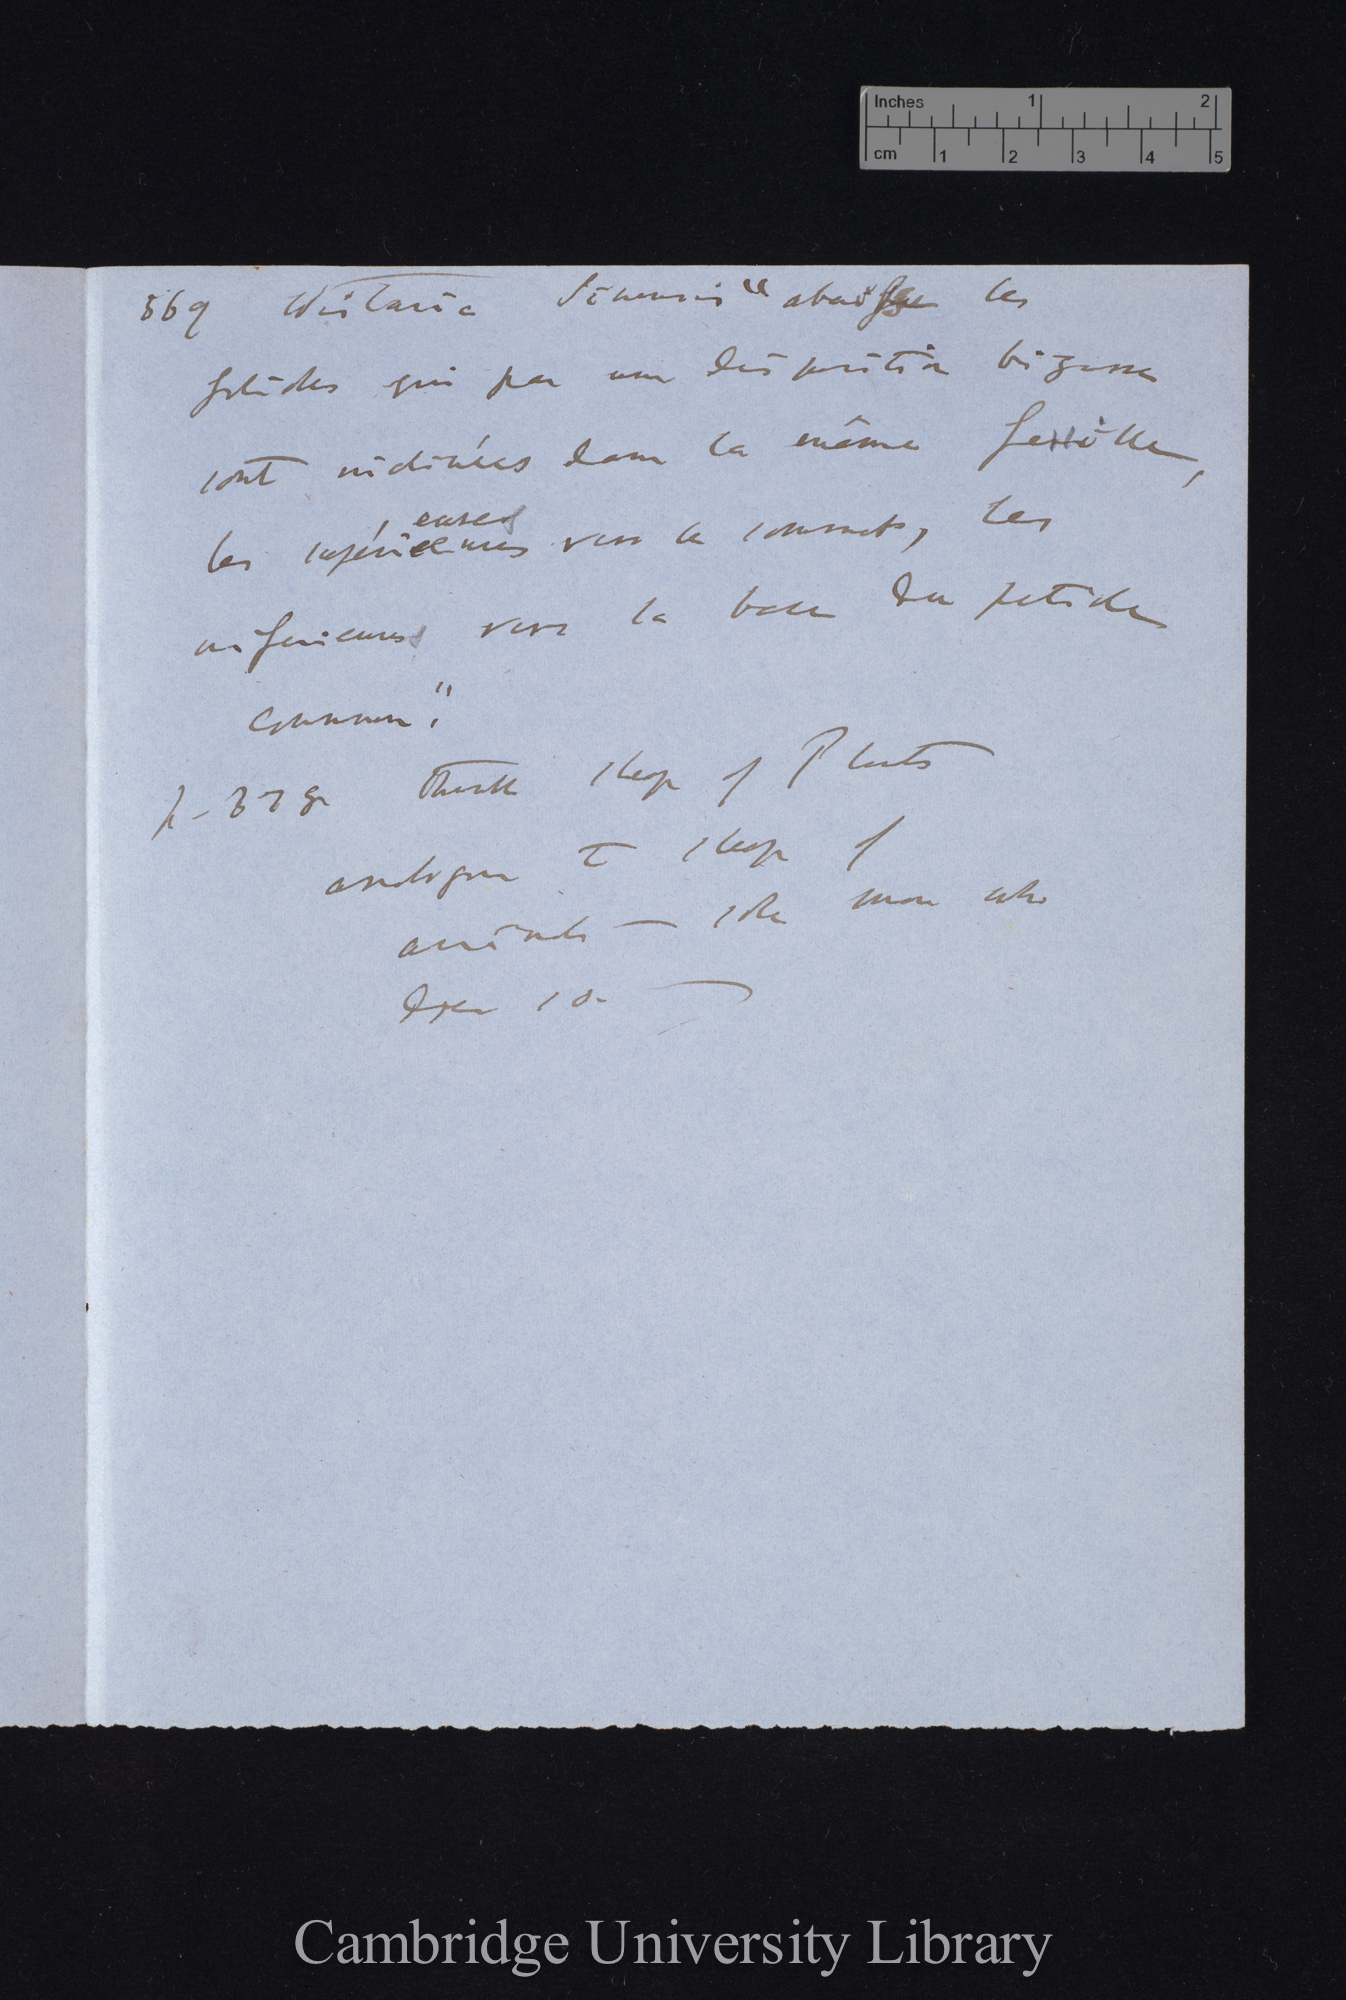 Inches 1 2
cm 1 2 3 4 5
369 Wistaria Sinensis "abaisse les
folioles qui par une disposition bizarre
sont inclinées dans la même feuille,
les supérieures vers le sommet, les
eures
inferieures vers la base du petiole
commun".
p. 378 Thinks sleep of Plants
analogous to sleep of
animals — sole man who
does so —
Cambridge University Library